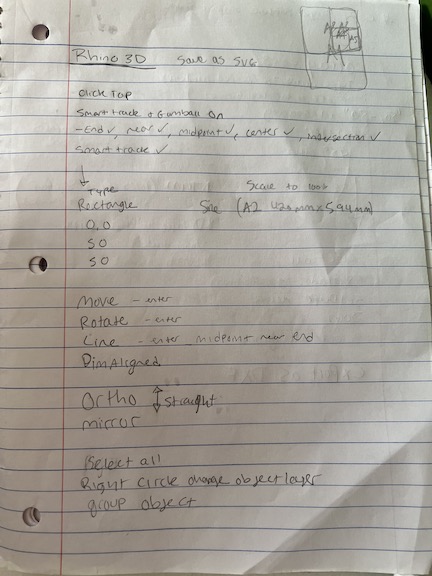 Rhino 3D   Save as SVG
A2 A2
A4 A3
A4
Click Top
Smart track & Gumball On
-End ✓, near ✓, midpoint ✓, center ✓, intersection ✓
Smart track ✓
↓
Type   Scale to 100%
Rectangle   Size (A2 420mm x 594mm)
0,0
50
50
Move - enter
Rotate - enter
Line - enter midpoint near end
DimAligned
Ortho ↕ Straight
mirror
Select all
Right circle change object layer
group object